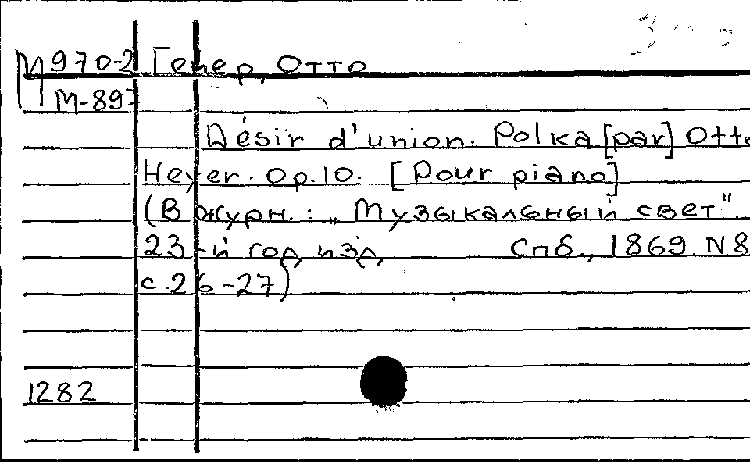 М970-2 Гейер, Отто
М-897
Désir d'union. Polka [par] Otto
Heyer. Op.10. [Pour piano]
(В журн.: „Музыкальный свет"
23-й год изд. Спб., 1869 N8
с.26-27)
1282